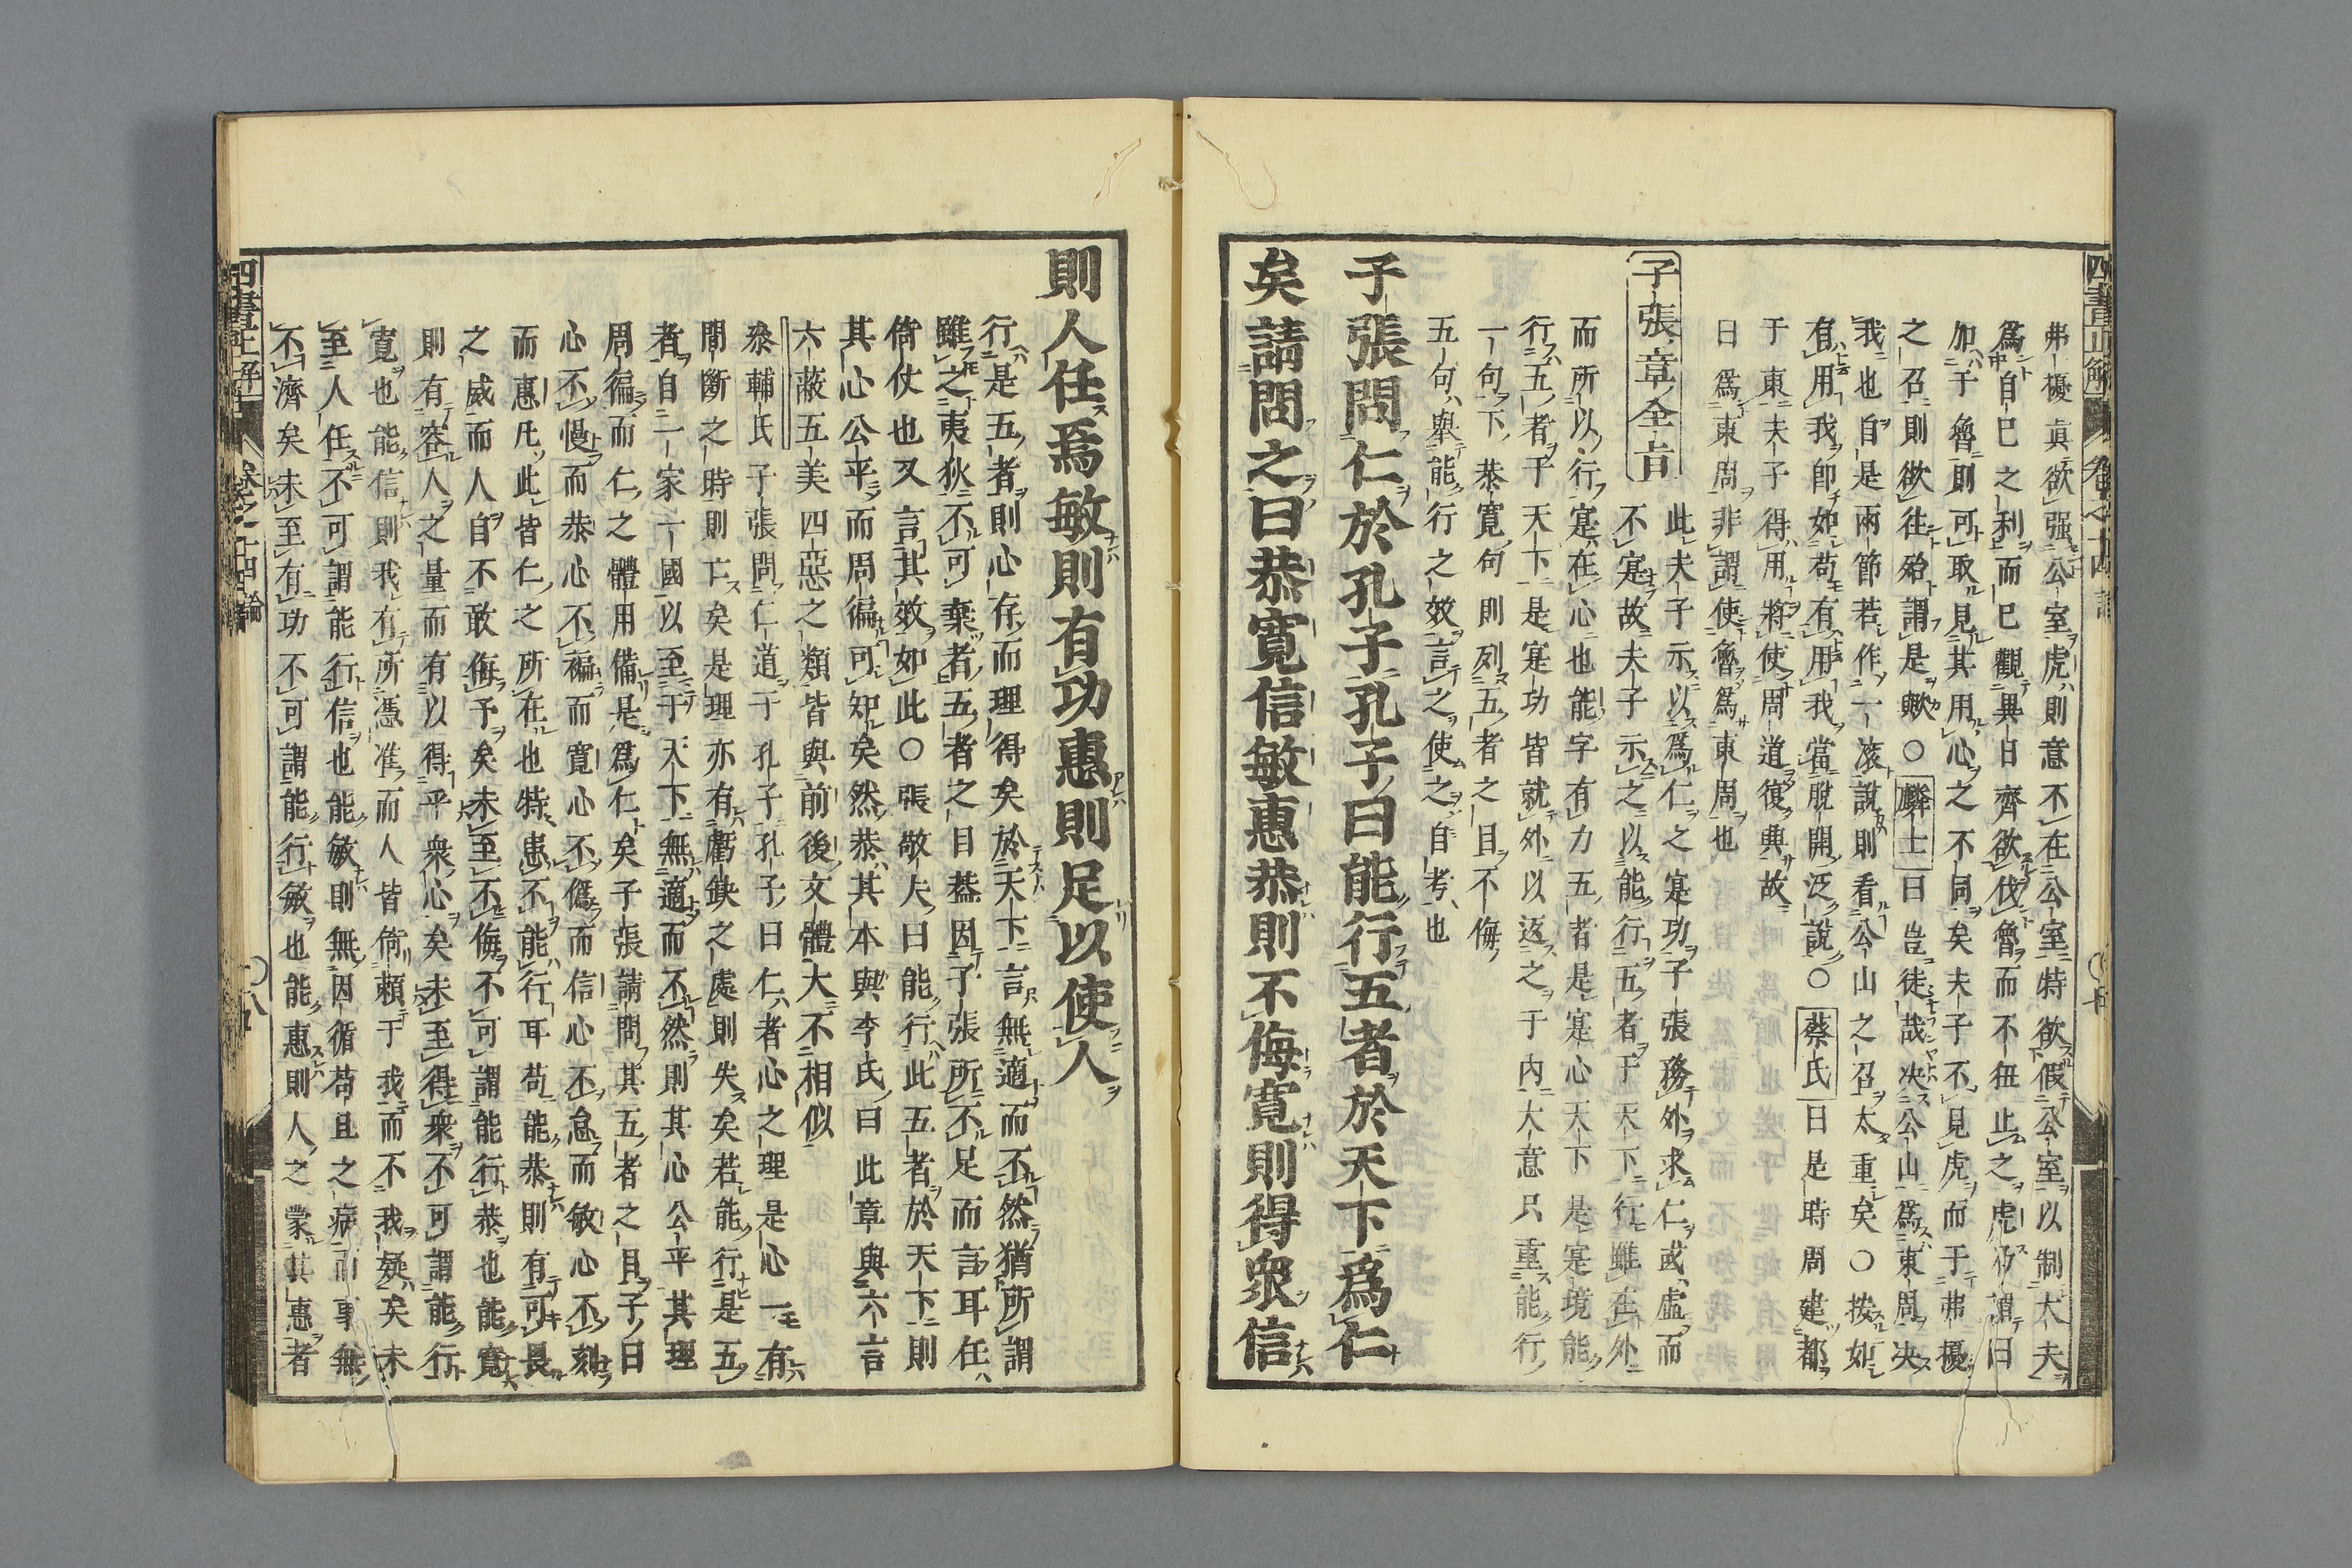 弗擾眞欲强公室虎則意不在公室特欲假公室以制大夫
爲自已之利而已觀異日齊欲伐魯而不狃止之虎
加于魯則可取見其用心之不同矣夫子不見虎而于弗擾
之召則欲往殆謂是歟〇麟士曰豈徒哉决公山爲東周决
我也自是兩節若作一滚說則看公山之召太重矣〇按如
有用我卽如苟有用我當脫開泛說〇蔡氏曰是時周建都
于東夫子得用將使周道復興故
曰爲東周非謂使魯爲東周也
子張章全旨
此夫子示以爲仁之寔功子張務外求仁或虛而
不寔故夫子示之以能行五者于天下行雖在外
而所以行寔在心也能字有力五者是寔心天下是寔境能
行五者于天下是寔功皆就外以返之于內大意只重能行
一句下恭寬句則列五者之目不侮
五句舉能行之效言之使之自考也
子張問仁於孔子孔子曰能行五者於天下爲仁
矣請問之曰恭寬信敏惠恭則不侮寬則得眾信
則人任焉敏則有功惠則足以使人
行是五者則心存而理得矣於天下言無適而不然猶所謂
雖之夷狄不可棄者五者之目葢因子張所不足而言耳任
倚仗也又言其效如此〇張敬夫曰能行此五者於天下則
其心公平而周徧可知矣然恭其本與李氏曰此章與六言
六蔽五美四惡之類皆與前後文體大不相似
叅輔氏子張問仁道于孔子孔子曰仁者心之理是心一有
間斷之時則亡矣是理亦有虧缺之處則失矣若能行是五
者自一家一國以至于天下無適而不然則其心公平其理
周徧而仁之體用備是爲仁矣子張請問其五者之目子曰
心不慢而恭心不褊而寬心不僞而信心不怠而敏心不刻
而惠凡此皆仁之所在也特患不能行耳苟能恭則有可畏
之威而人自不敢侮予矣未至不侮不可謂能行恭也能寬
則有容人之量而有以得乎衆心矣未至得衆不可謂能行
寬也能信則我有所憑准而人皆倚賴于我而不我疑矣未
至人任不可謂能行信也能敏則無因循苟且之病而事無
不濟矣未至有功不可謂能行敏也能惠則人之蒙其惠者